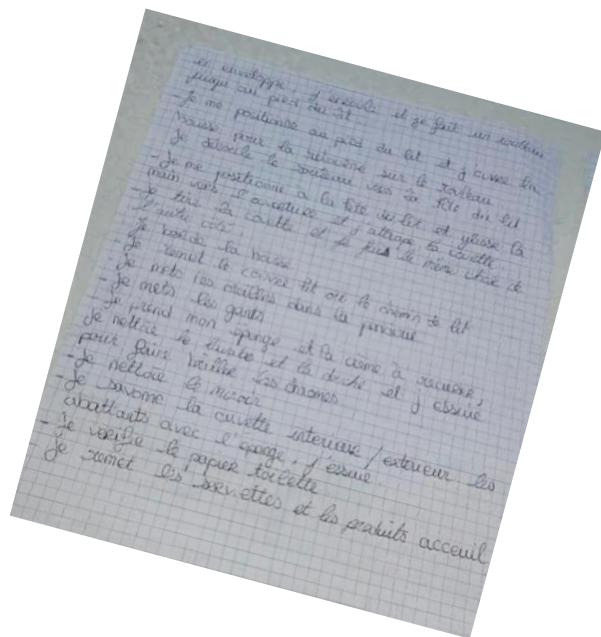 et enveloppe, j'enroule et je fait un rouleau
jusqu'au pied du lit
- Je me positionne au pied du lit et j'ouvre la
housse pour la sur le rouleau
Je déroule le rouleau vers la tête du lit
- Je me positionne à la tête du lit et glisse la
main vers l'ouverture et j'attrape la couette
- Je tire la couette et je fais la même chose de
l'autre côté
Je borde la housse
- Je remet le couvre lit ou le chemin de lit
- Je mets les oreillers dans la
- Je mets les gants
- Je prend mon éponge et la crème à recurer,
Je nettoie le lavabo et la douche et j'essuie
pour faire briller les chromes
- Je nettoie le miroir
- Je savonne la cuvette interieur / exterieur les
abattants avec l'éponge, j'essuie
- Je verifie le papier toilette
- Je remet les serviettes et les produits acceuil